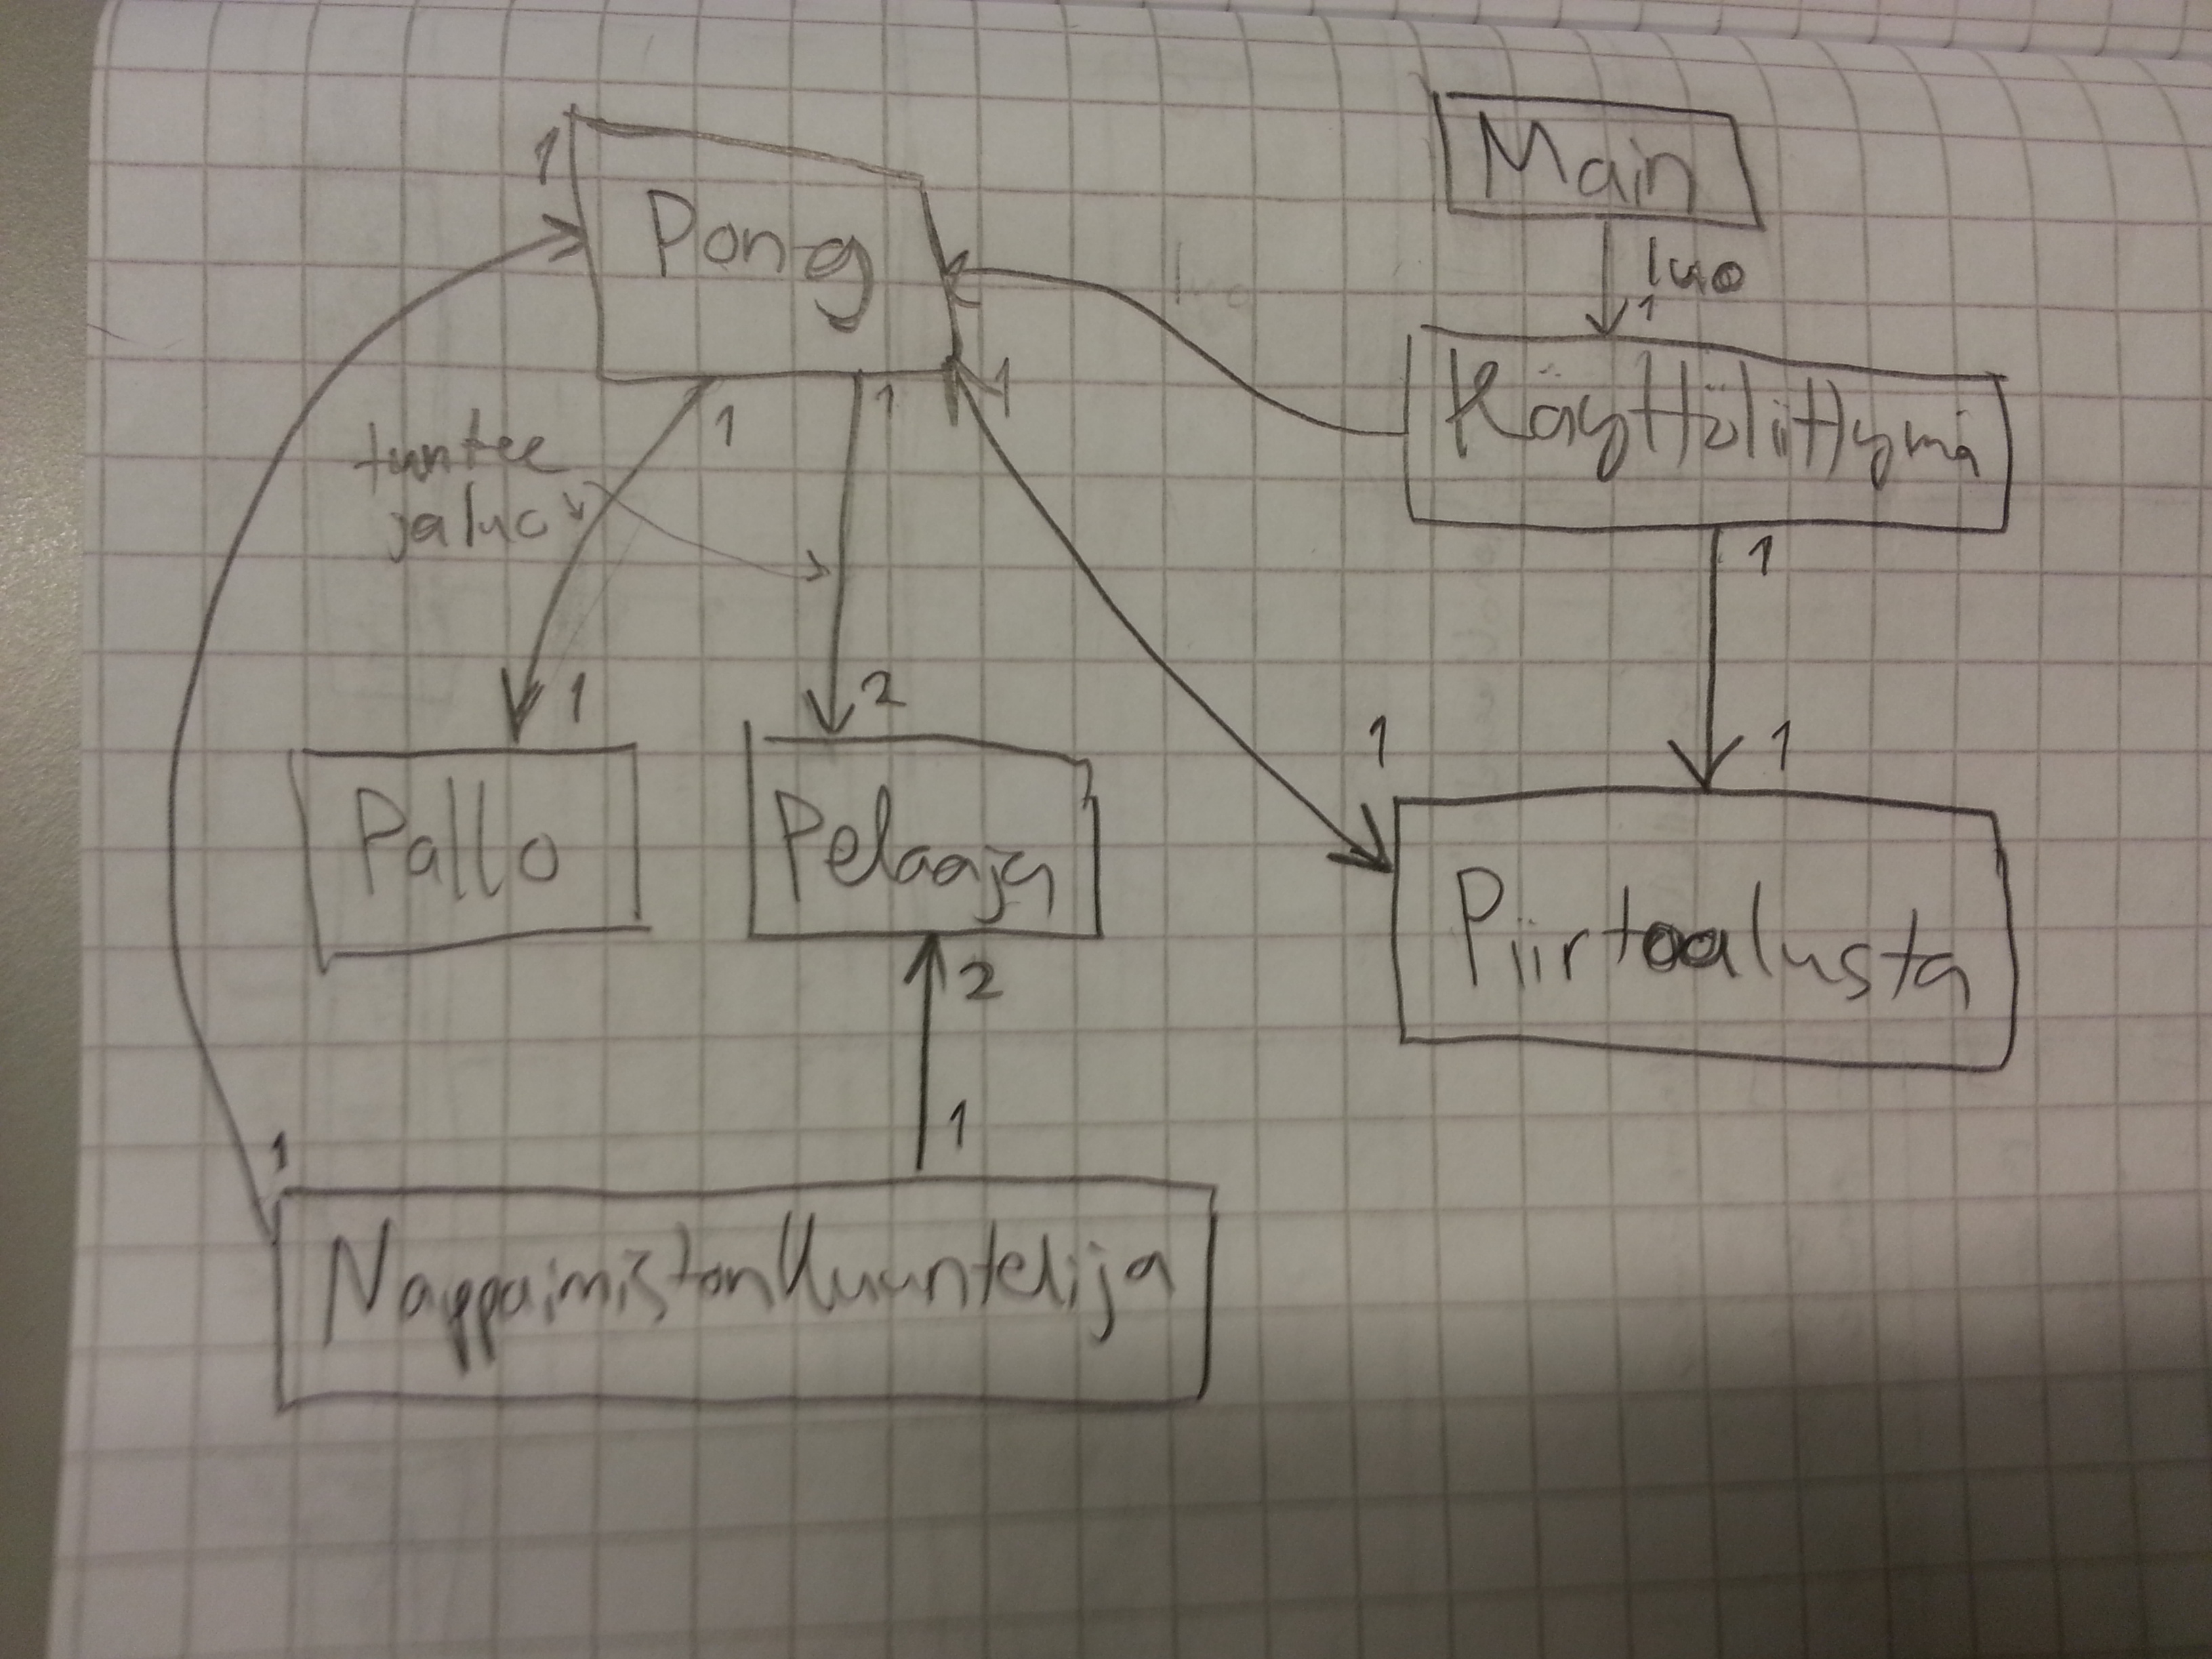 Main
1
Pong
luo
luo
1
Käyttöliittymä
1
1
1
tuntee
ja luo
1
1
2
1
1
Pallo
Pelaaja
Piirtoalusta
2
1
1
Nappaimistonkuuntelija